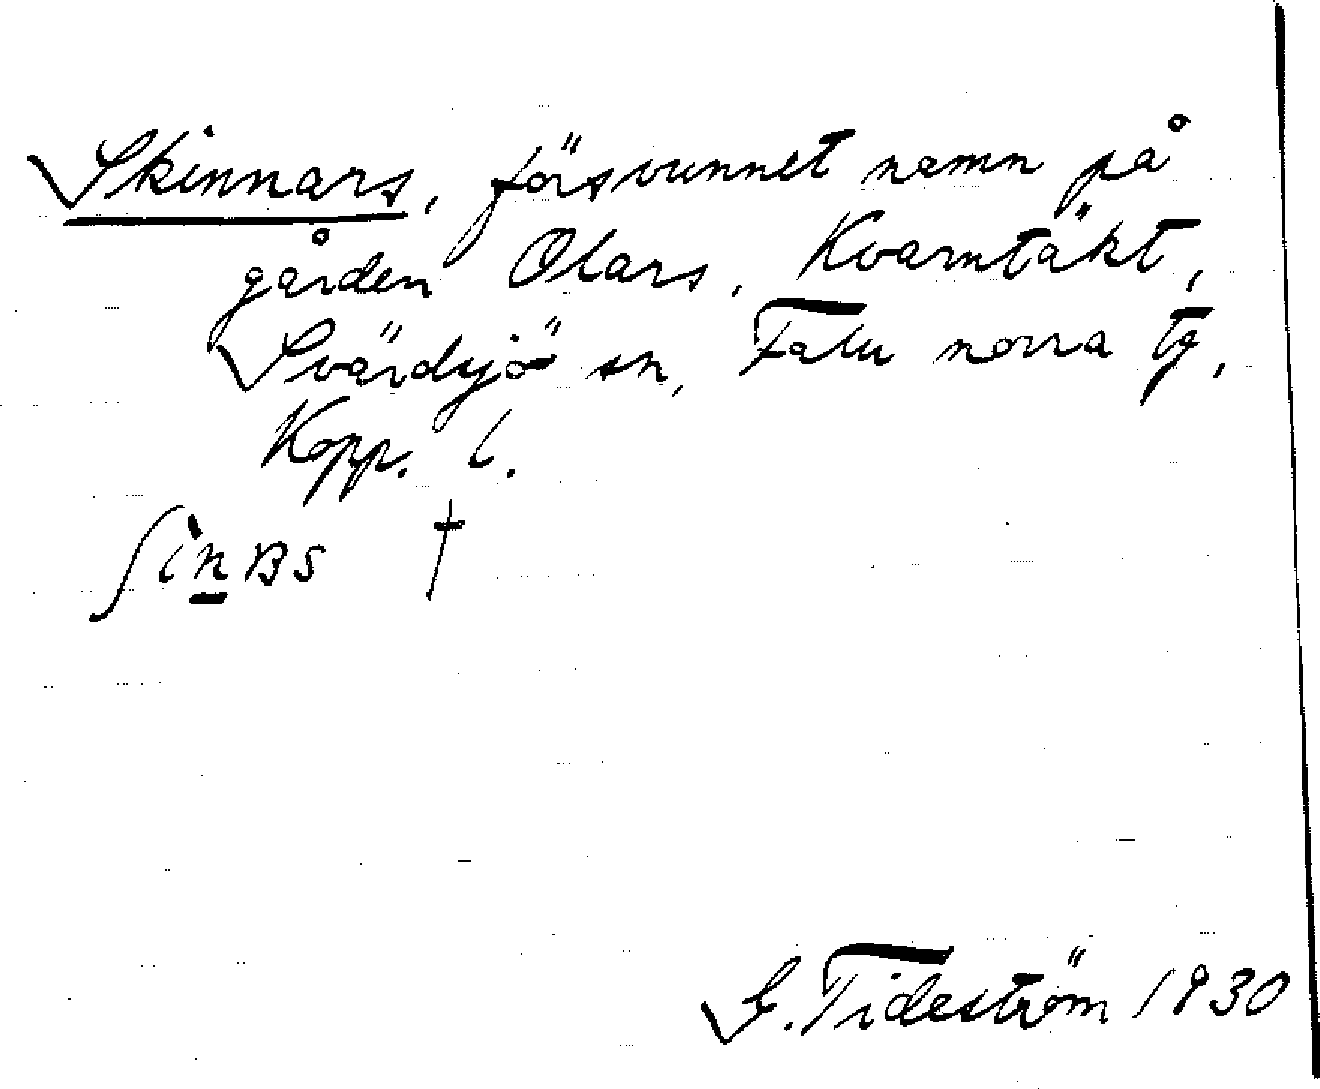 Skinnars, försvunnet namn på
gården Olars, Kvarntäkt,
Svärdsjö sn, Falu norra tg,
Kopp. l.
†
G. Tideström 1930